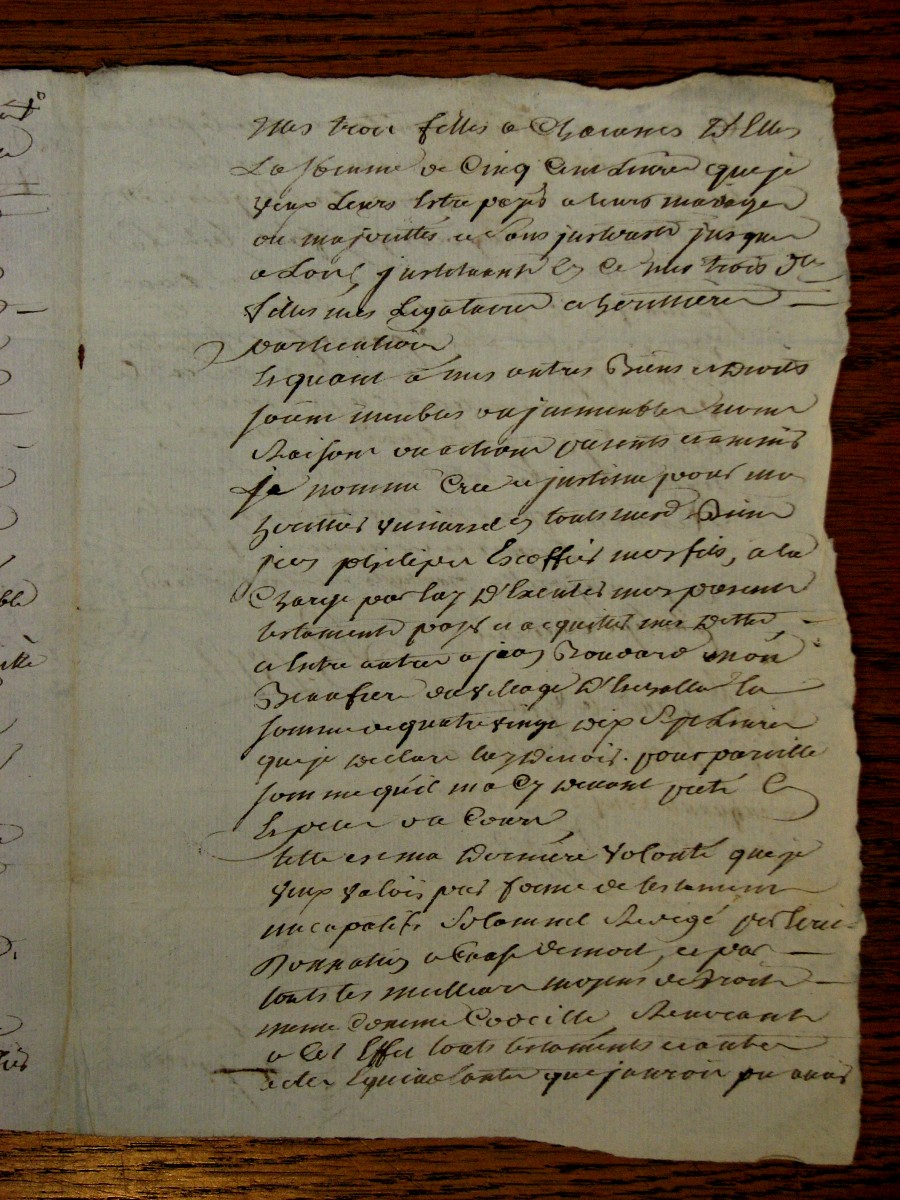 mes trois filles a Chacunes d'Elles
La somme de Cinq Cent Livres que je
veux Leurs Estre payé a leurs mariages
ou majorittés et sans jusques
a Lors, justituant mes trois
filles mes Legataires et heritières
particulières
Et quant á mes autres Biens et Droits
soient meubles ou jmmeubles noms
Raisons ou actions presents et
Je nomme Crée et justitue pour mon
heritier universel en touts mes Biens
philipe Escoffier mon fils, a la
Charge par luy D'Executer mon present
testament payer et acquitter mes Dettes
et Entre autres a jean Bouvard mon
du village la
somme de quatre vingt Dix sept Livres
que je Declare luy Devoir pour pareille
somme qu'il ma Cy Devant preté
Espece ou Cours
telle est ma Derniere volonté que je
veux valoir par forme de testament
nuncupatif Solamnel Redigé par Ecrit
Donnation a Cause de mort, et par
touts les meilleurs moyens de Droit
meme Comme Codcille Revocant
a Cet Effet touts testaments et autres
actes Equivalants que jaurois pu avoir